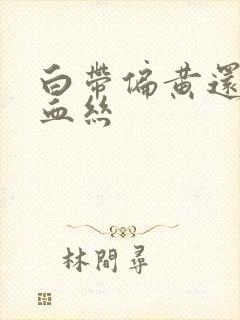 白帶偏黃還
血絲
林間尋